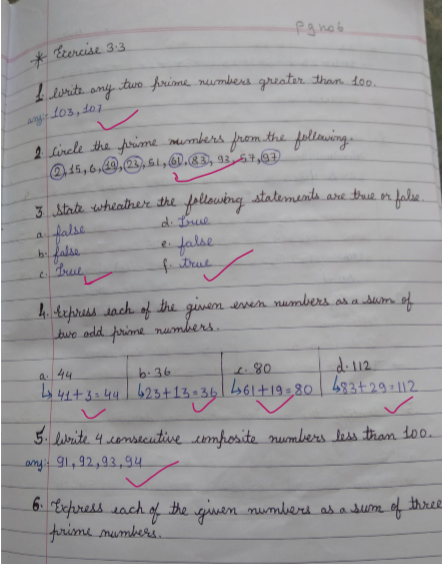 P.g no 6
* Exercise 3.3
1. Write any two prime numbers greater than 100.
ans: 103, 107
2. Circle the prime numbers from the following.
2, 15, 6, 19, 23, 51, 61, 83, 93, 57, 97
3. State wheather the following statements are true or false.
a. false d. True
b. false e. false
c. True f. true
4. Express each of the given even numbers as a sum of
two odd prime numbers.
a. 44 b. 36 c. 80 d. 112
↳ 41+3=44 ↳ 23+13=36 ↳ 61+19=80 ↳ 83+29=112
5. Write 4 consecutive composite numbers less than 100.
ans: 91, 92, 93, 94
6. Express each of the given numbers as a sum of three
prime numbers.